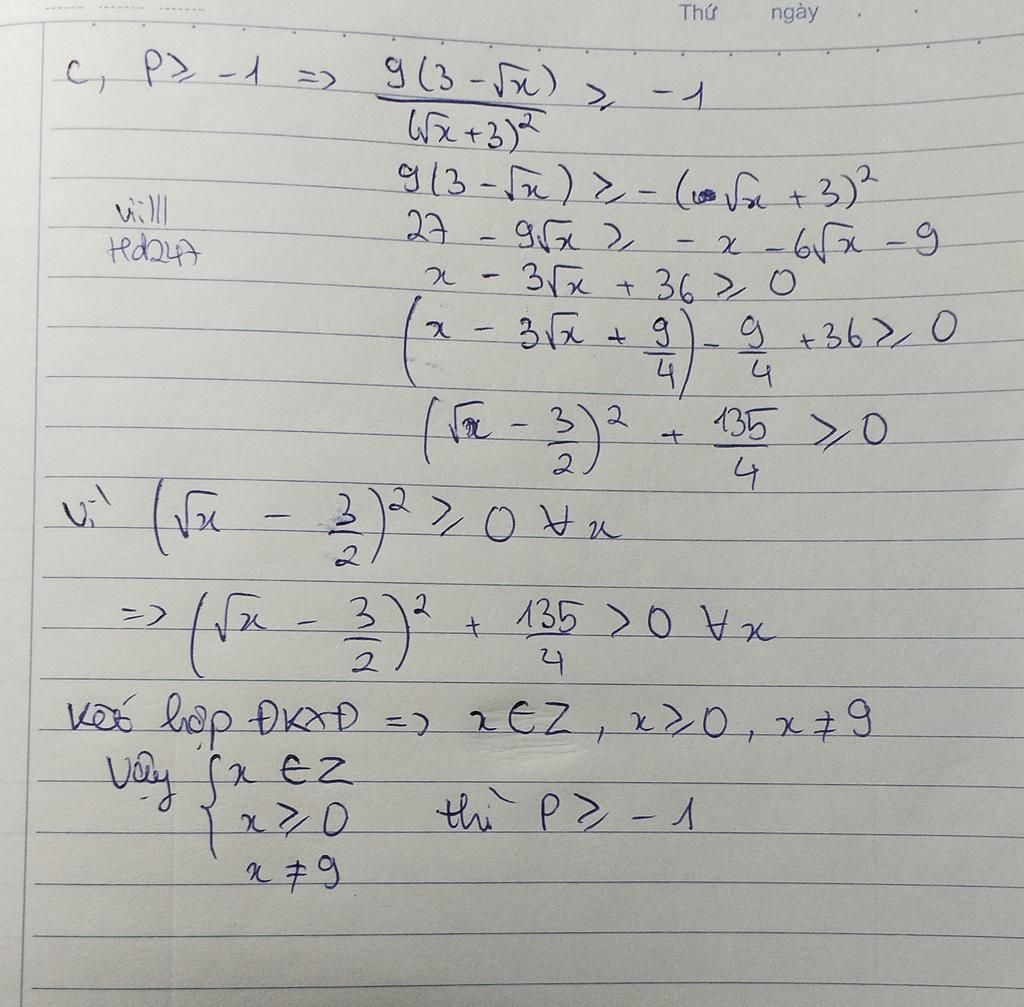 Thứ ngày
c, P ≥ -1 => 9(3 - √x) / (√x + 3)² ≥ -1
9(3 - √x) ≥ -(√x + 3)²
27 - 9√x ≥ - x - 6√x - 9
x - 3√x + 36 ≥ 0
(x - 3√x + 9/4) - 9/4 + 36 ≥ 0
(√x - 3/2)² + 135/4 ≥ 0
Vì (√x - 3/2)² ≥ 0 ∀x
=> (√x - 3/2)² + 135/4 > 0 ∀x
Kết hợp ĐKXĐ => x ∈ Z, x ≥ 0, x ≠ 9
Vậy { x ∈ Z
x ≥ 0 thì P ≥ -1
x ≠ 9